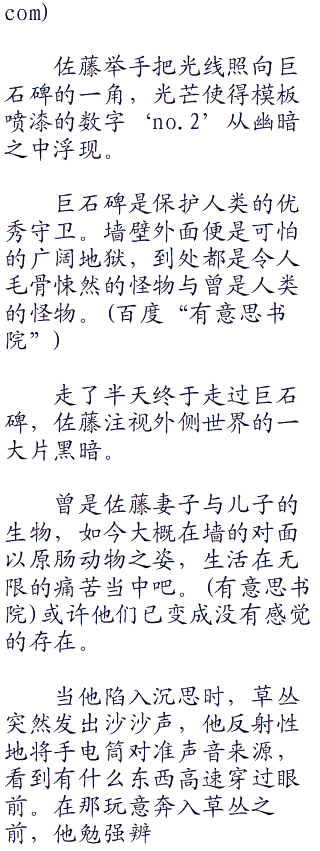 com)
佐藤举手把光线照向巨
石碑的一角，光芒使得模板
喷漆的数字‘no.2’从幽暗
之中浮现。
巨石碑是保护人类的优
秀守卫。墙壁外面便是可怕
的广阔地狱，到处都是令人
毛骨悚然的怪物与曾是人类
的怪物。(百度“有意思书
院”)
走了半天终于走过巨石
碑，佐藤注视外侧世界的一
大片黑暗。
曾是佐藤妻子与儿子的
生物，如今大概在墙的对面
以原肠动物之姿，生活在无
限的痛苦当中吧。(有意思书
院)或许他们已变成没有感觉
的存在。
当他陷入沉思时，草丛
突然发出沙沙声，他反射性
地将手电筒对准声音来源，
看到有什么东西高速穿过眼
前。在那玩意奔入草丛之
前，他勉强辨